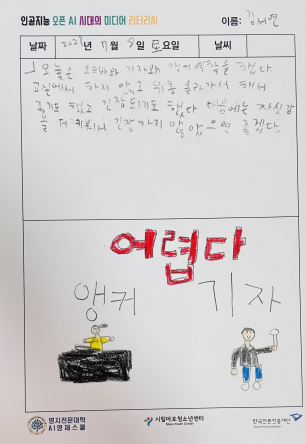 인공지능 오픈 AI 시대의 미디어 리터러시
이름: 김서연
날짜 2021년 7월 8일 토요일 날씨
오늘은 오빠와 기자와 앵커 역할을 했다.
교실에서 하지 않고 위층 올라가서 해서
좋기도 했고 긴장되기도 했다 다음에는 자신감
을 더 키워서 긴장하지 않았으면 좋겠다.
어렵다
앵커 기자
명지전문대학
AI영재스쿨
시립마포청소년센터
Mapo Youth Center
한국언론진흥재단